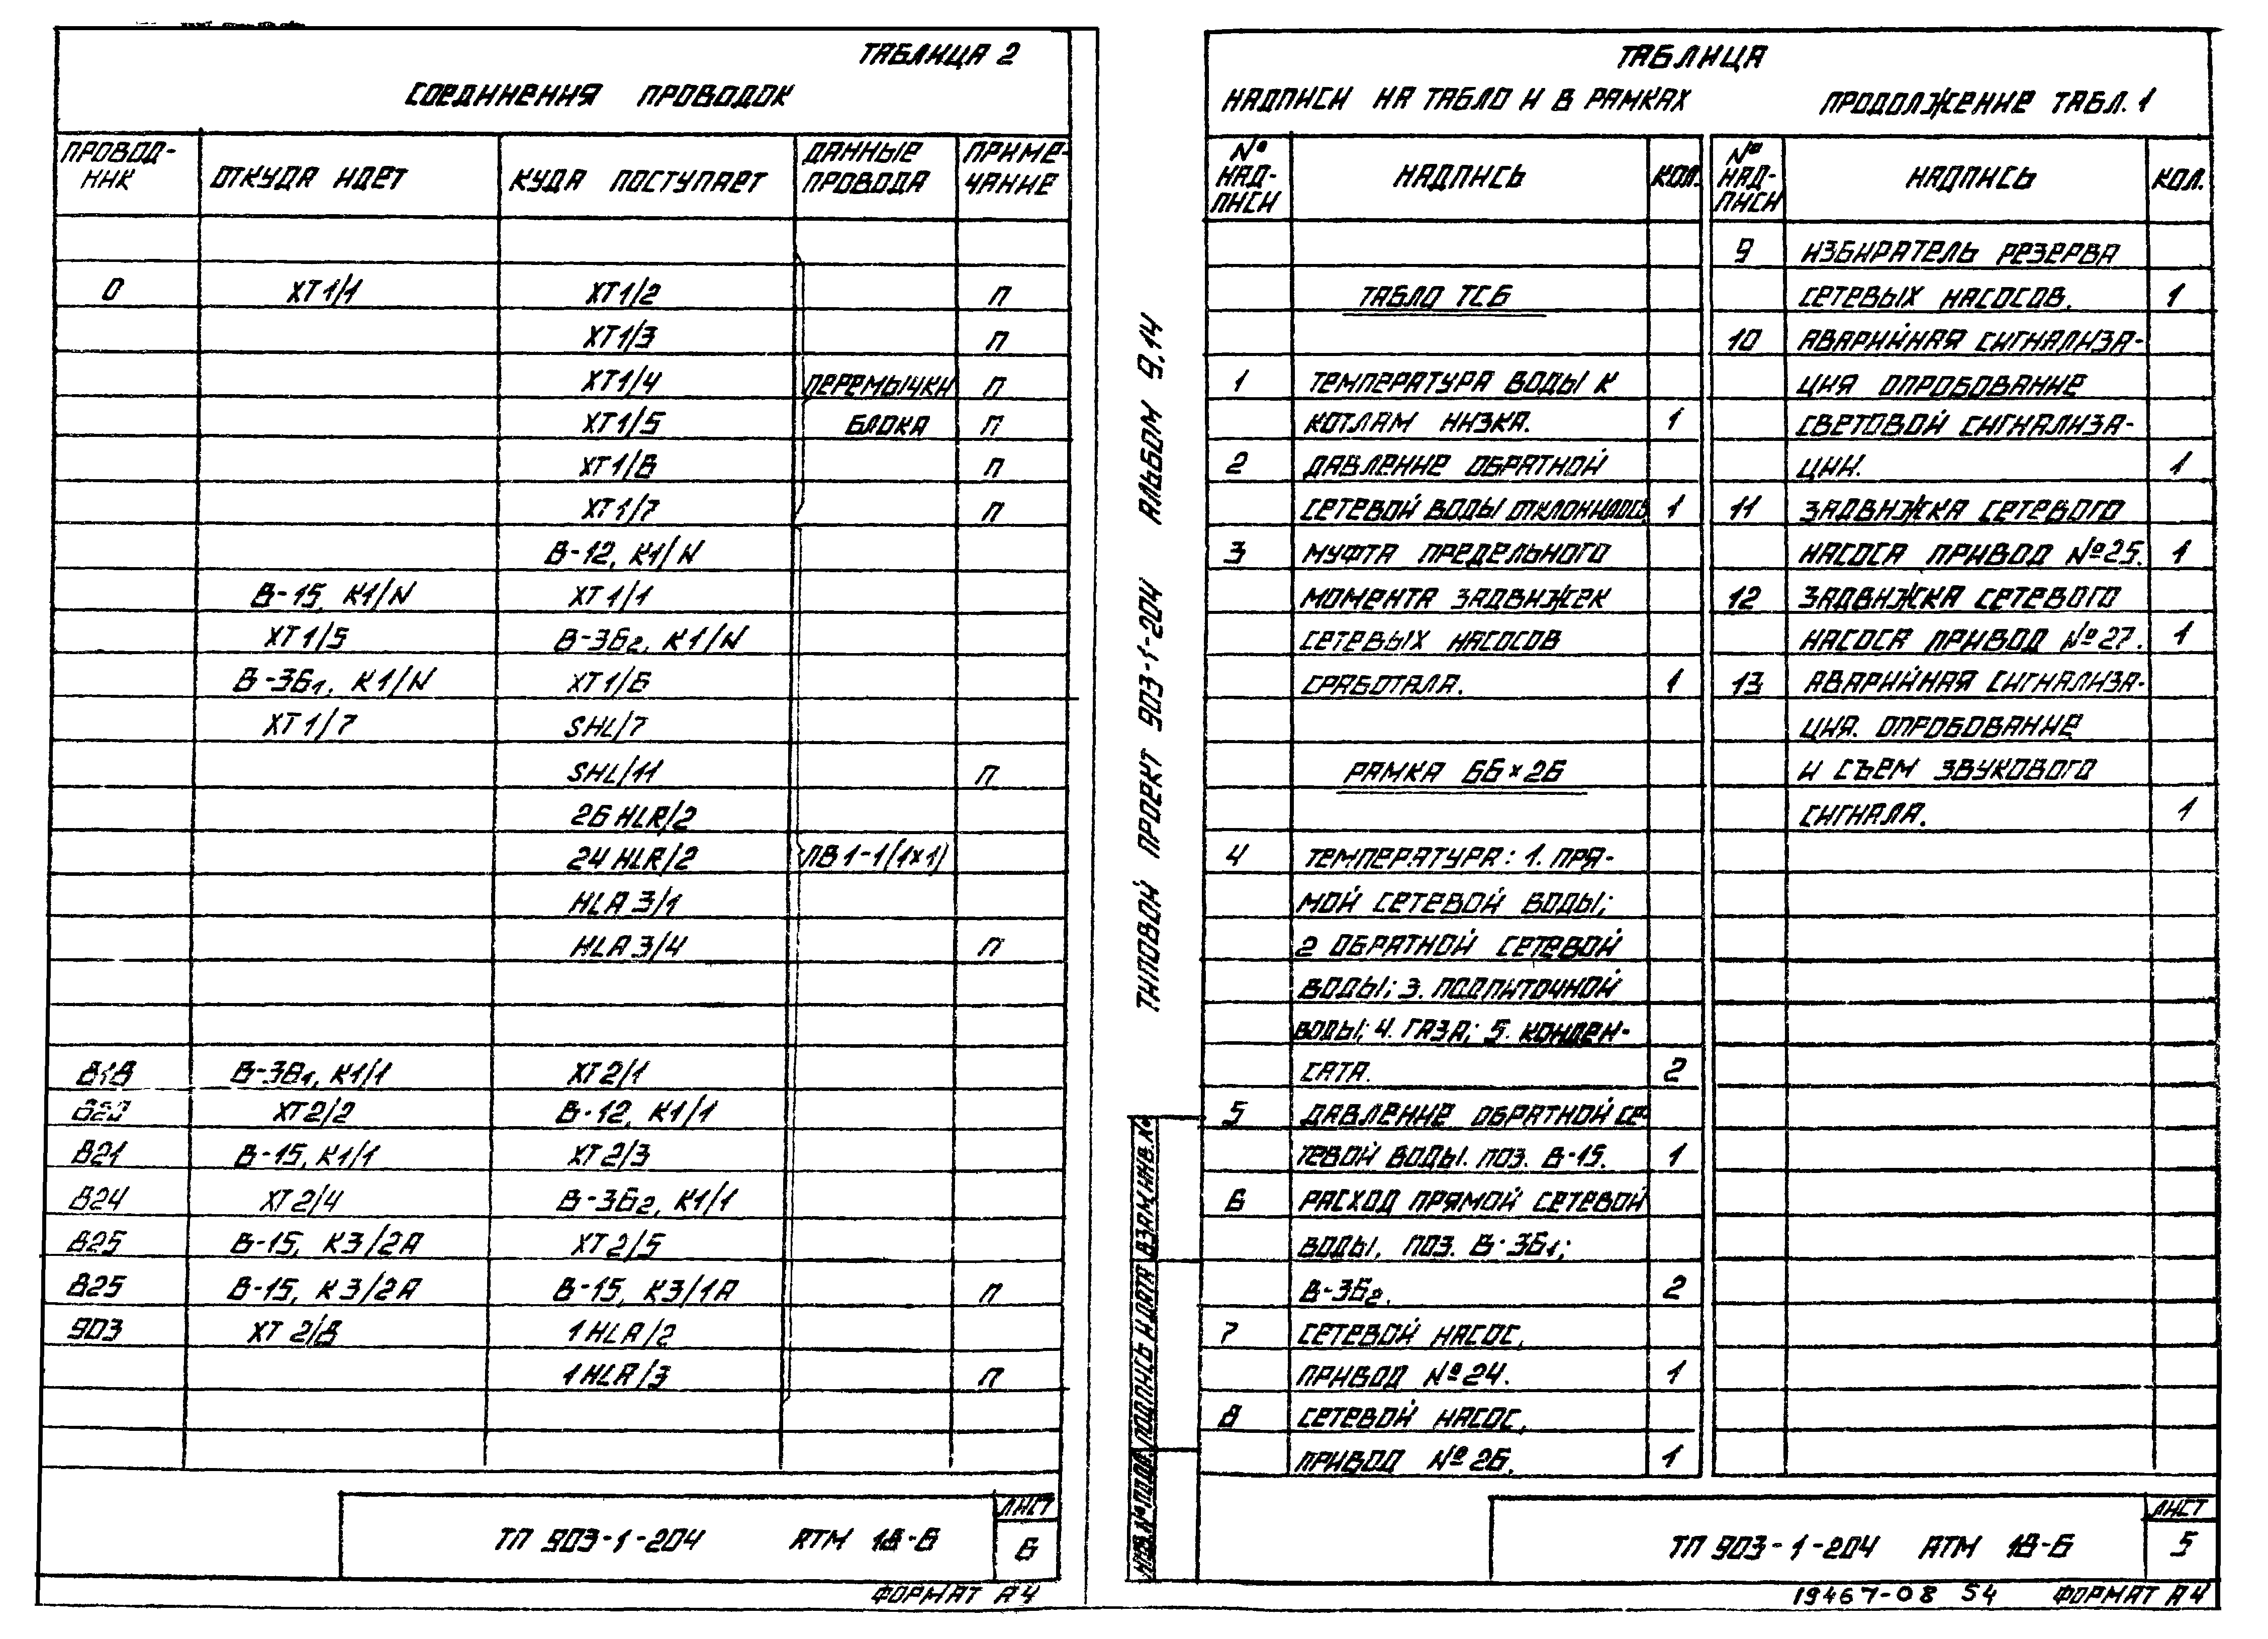 ТАБЛИЦА 2
СОЕДИНЕНИЯ ПРОВОДОК
ПРОВОД-
НИК
ОТКУДА ИДЕТ
КУДА ПОСТУПАЕТ
ДАННЫЕ
ПРОВОДА
ПРИМЕ-
ЧАНИЕ
0 XT1/1 XT1/2 П
XT1/3 П
XT1/4 ПЕРЕМЫЧКИ П
XT1/5 БЛОКА П
XT1/6 П
XT1/7 П
В-12, К1/N
В-15, К1/N XT1/1
XT1/5 В-36г, К1/N
В-361, К1/N XT1/6
XT1/7 SHL/7
SHL/11 П
26 HLR/2
24 HLR/2 ПВ1-1(1×1)
HLA 3/1
HLA 3/4 П
818 В-361, К1/1 XT2/1
820 XT2/2 В-12, К1/1
821 В-15, К1/1 XT2/3
824 XT2/4 В-36г, К1/1
825 В-15, К3/2А XT2/5
825 В-15, К3/2А В-15, К3/1А П
903 XT 2/8 1HLA/2
1HLA/3 П
ТП 903-1-204 АТМ 18-6
ЛИСТ
6
ФОРМАТ А4
ТИПОВОЙ ПРОЕКТ 903-1-204 АЛЬБОМ 9.14
ИНВ.№ ПОДЛ. ПОДПИСЬ И ДАТА ВЗАМ.ИНВ.№
ТАБЛИЦА
НАДПИСИ НА ТАБЛО И В РАМКАХ
№
НАД-
ПИСИ
НАДПИСЬ
КОЛ.
ТАБЛО ТСБ
1 ТЕМПЕРАТУРА ВОДЫ К
КОТЛАМ НИЗКА. 1
2 ДАВЛЕНИЕ ОБРАТНОЙ
СЕТЕВОЙ ВОДЫ ОТКЛОНИЛОСЬ 1
3 МУФТА ПРЕДЕЛЬНОГО
МОМЕНТА ЗАДВИЖЕК
СЕТЕВЫХ НАСОСОВ
СРАБОТАЛА. 1
РАМКА 66×26
4 ТЕМПЕРАТУРА: 1. ПРЯ-
МОЙ СЕТЕВОЙ ВОДЫ;
2 ОБРАТНОЙ СЕТЕВОЙ
ВОДЫ; 3. ПОДПИТОЧНОЙ
ВОДЫ; 4. ГАЗА; 5. КОНДЕН-
САТА. 2
5 ДАВЛЕНИЕ ОБРАТНОЙ СЕ-
ТЕВОЙ ВОДЫ. ПОЗ. В-15. 1
6 РАСХОД ПРЯМОЙ СЕТЕВОЙ
ВОДЫ. ПОЗ. В-361;
В-36г. 2
7 СЕТЕВОЙ НАСОС,
ПРИВОД №24. 1
8 СЕТЕВОЙ НАСОС,
ПРИВОД №26. 1
ПРОДОЛЖЕНИЕ ТАБЛ. 1
№
НАД-
ПИСИ
НАДПИСЬ
КОЛ.
9 ИЗБИРАТЕЛЬ РЕЗЕРВА
СЕТЕВЫХ НАСОСОВ. 1
10 АВАРИЙНАЯ СИГНАЛИЗА-
ЦИЯ ОПРОБОВАНИЕ
СВЕТОВОЙ СИГНАЛИЗА-
ЦИИ. 1
11 ЗАДВИЖКА СЕТЕВОГО
НАСОСА ПРИВОД №25. 1
12 ЗАДВИЖКА СЕТЕВОГО
НАСОСА ПРИВОД №27. 1
13 АВАРИЙНАЯ СИГНАЛИЗА-
ЦИЯ. ОПРОБОВАНИЕ
И СЪЕМ ЗВУКОВОГО
СИГНАЛА. 1
ТП 903-1-204 АТМ 18-6
ЛИСТ
5
19467-08 54 ФОРМАТ А4